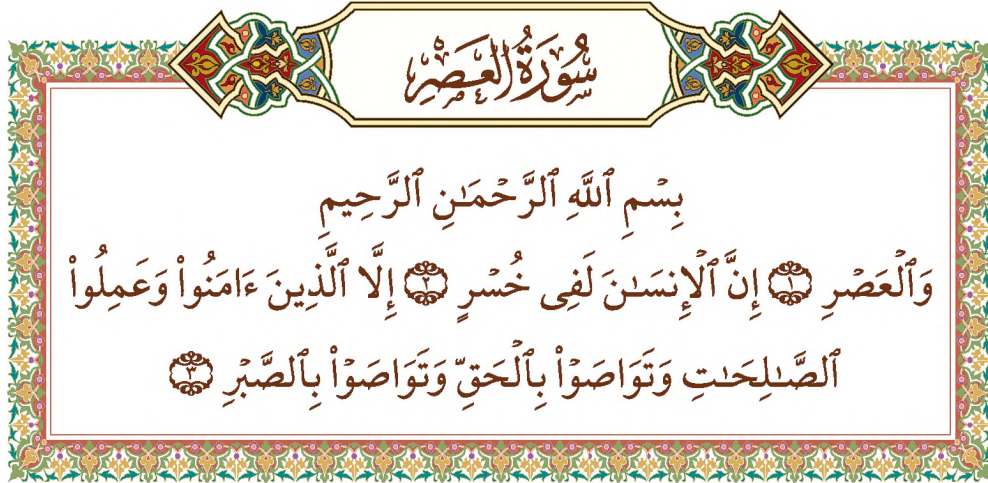 سُورَةُ العَصۡرِ
بِسۡمِ ٱللَّهِ ٱلرَّحۡمَـٰنِ ٱلرَّحِيمِ
وَٱلۡعَصۡرِ ١ إِنَّ ٱلۡإِنسَـٰنَ لَفِى خُسۡرٍ ٢ إِلَّا ٱلَّذِينَ ءَامَنُوا۟ وَعَمِلُوا۟
ٱلصَّـٰلِحَـٰتِ وَتَوَاصَوۡا۟ بِٱلۡحَقِّ وَتَوَاصَوۡا۟ بِٱلصَّبۡرِ ٣